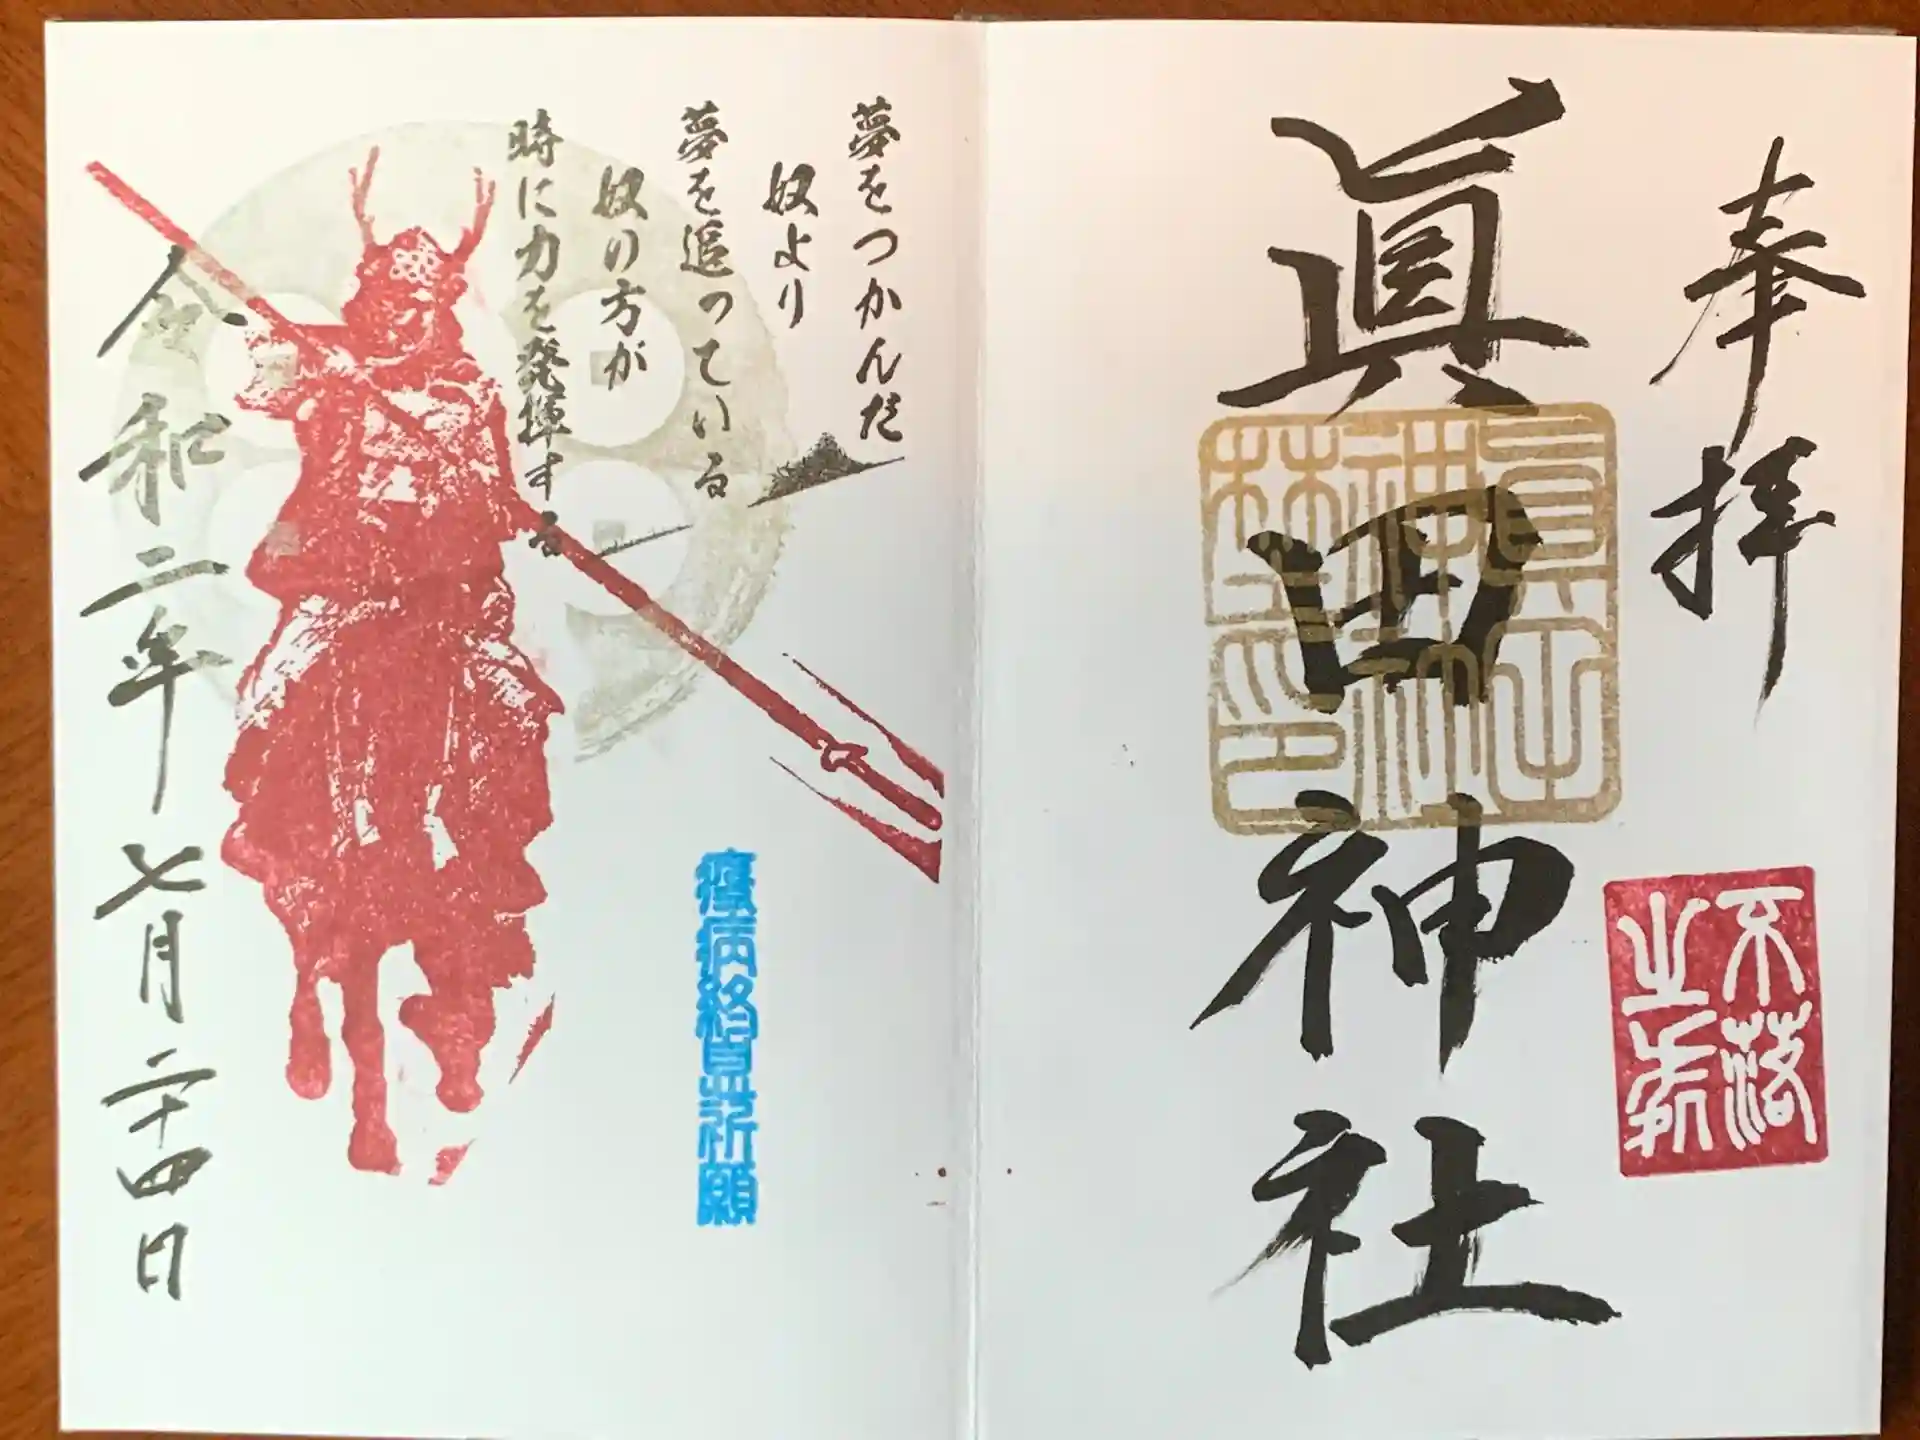 奉拝
眞田神社
眞田神社整印
不落之城
夢をつかんだ
奴より
夢を追っている
奴の方が
時に力を発揮する
疫病終息祈願
令和二年七月二十四日